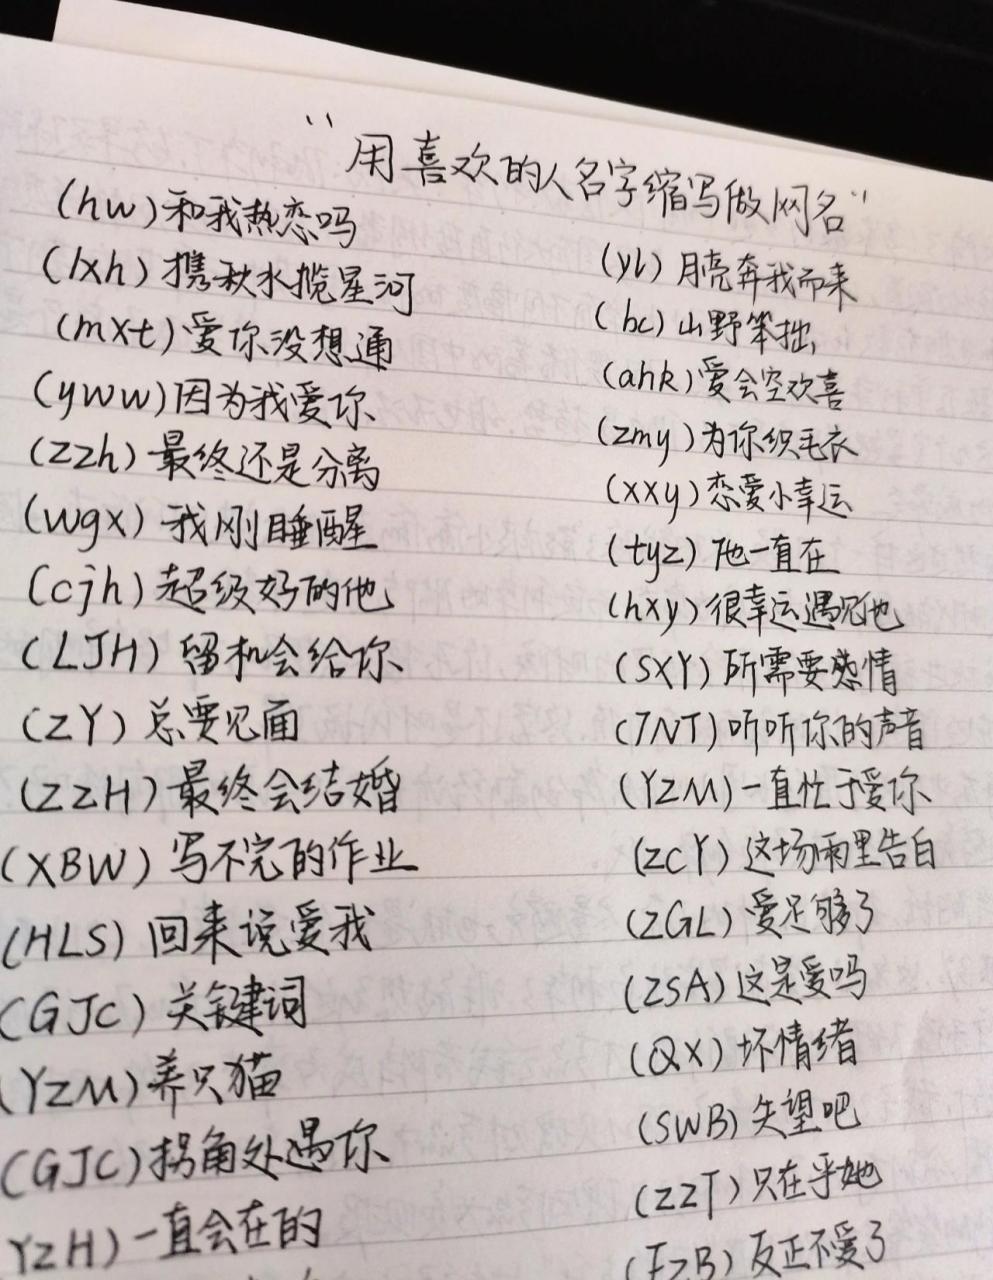 “用喜欢的人名字缩写做网名”
(hw)和我热恋吗
(lxh)携秋水揽星河
(mxt)爱你没想通
(yww)因为我爱你
(zzh)最终还是分离
(wgx)我刚睡醒
(cjh)超级好的他
(LJH)留机会给你
(ZY)总要见面
(ZZH)最终会结婚
(XBW)写不完的作业
(HLS)回来说爱我
(GJC)关键词
(YZM)养只猫
(GJC)拐角处遇你
YZH)一直会在的
(yl)月亮奔我而来
(bc)山野笨拙
(ahk)爱会空欢喜
(zmy)为你织毛衣
(xxy)恋爱小幸运
(tyz)他一直在
(hxy)很幸运遇见他
(SXY)所需要感情
(TNT)听听你的声音
(YZM)一直忙于爱你
(ZCY)这场雨里告白
(ZGL)爱足够了
(ZSA)这是爱吗
(QX)坏情绪
(SWB)失望吧
(ZZT)只在乎她
(FZB)反正不爱了